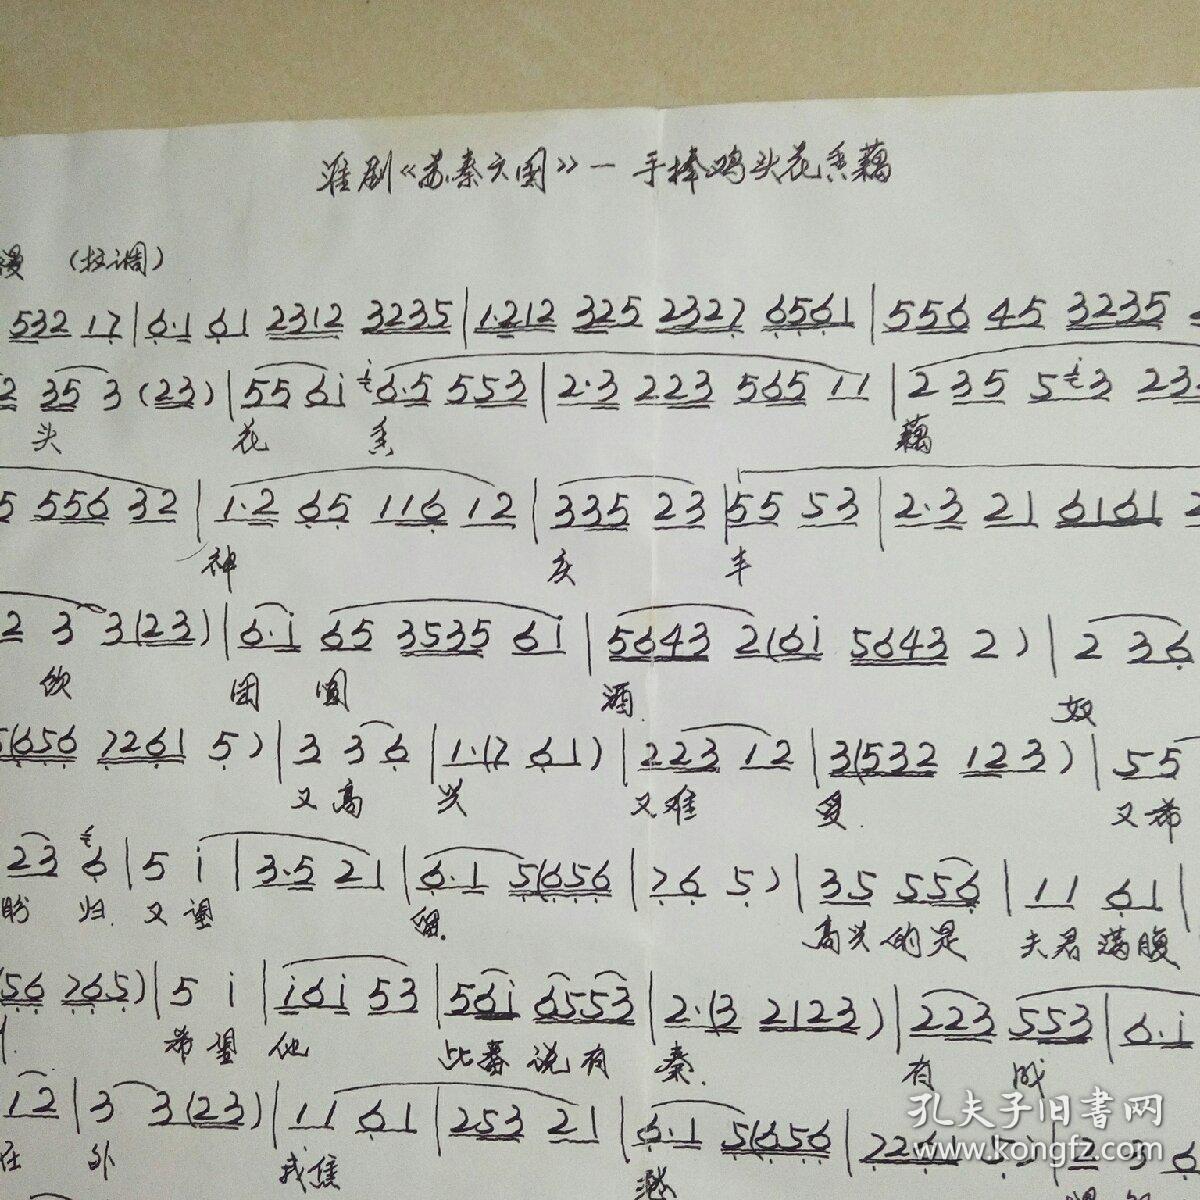 淮剧《苏秦六国》一手捧鸡头花香藕
慢 (拉调)
532 17 | 6·1 61 2312 3235 | 1·212 325 2327 6561 | 556 45 3235
2 35 3 (23) | 556i 6·5 553 | 2·3 223 565 11 | 2 35 5 3 23
头 花 香 藕
5 556 32 | 1·2 65 116 12 | 335 23 | 55 53 | 2·3 21 6161 2
神 灰 丰
2 3 3(23) | 6·i 65 3535 6i | 5643 2(6i 5643 2) | 2 36
饮 团 圆 酒 奴
5(656 7261 5) | 3 36 | 1·(7 61) | 223 12 | 3(532 123) | 55
又高 兴 又难 受 又希
23 6 | 5 i | 3·5 21 | 6·1 5(656 | 76 5) | 35 556 | 11 61 |
盼 归 又望 留 高兴的是 夫君满腹
(56 765) | 5 i | i6i 53 | 56i 6553 | 2·(3 2123) | 223 553 | 6·i
希望他 比番说有 秦 有 成
12 | 3 3(23) | 11 61 | 253 21 | 6·1 5(656 | 7261 5) | 2 3 6
在 外 我焦 愁
孔夫子旧書网
www.kongfz.com